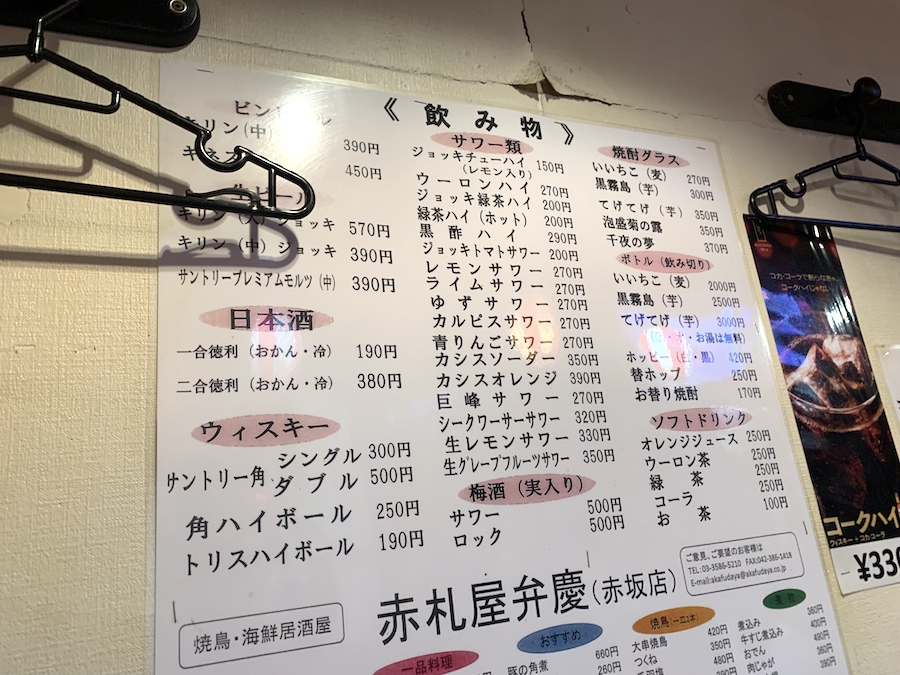 《 飲み物 》
キリン（中）390円
450円
キリン（大）ジョッキ 570円
キリン（中）ジョッキ 390円
サントリープレミアムモルツ（中）390円
日本酒
一合徳利（おかん・冷）190円
二合徳利（おかん・冷）380円
ウィスキー
サントリー角 シングル 300円
ダブル 500円
角ハイボール 250円
トリスハイボール 190円
サワー類
ジョッキチューハイ 150円
（レモン入り）
ウーロンハイ 270円
ジョッキ緑茶ハイ 200円
緑茶ハイ（ホット）200円
黒酢ハイ 290円
ジョッキトマトサワー 200円
レモンサワー 270円
ライムサワー 270円
ゆずサワー 270円
カルピスサワー 270円
青りんごサワー 270円
カシスソーダー 350円
カシスオレンジ 390円
巨峰サワー 270円
シークワーサーサワー 320円
生レモンサワー 330円
生グレープフルーツサワー 350円
梅酒（実入り）
サワー 500円
ロック 500円
焼酎グラス
いいちこ（麦）270円
黒霧島（芋）300円
てげてげ（芋）350円
泡盛菊の露 350円
千夜の夢 370円
ボトル（飲み切り）
いいちこ（麦）2000円
黒霧島（芋）2500円
てげてげ（芋）3000円
・水・お湯は無料）
ホッピー（白・黒）420円
替ホップ 250円
お替り焼酎 170円
ソフトドリンク
オレンジジュース 250円
ウーロン茶 250円
緑茶 250円
コーラ 250円
お茶 100円
焼鳥・海鮮居酒屋
赤札屋弁慶（赤坂店）
ご意見、ご要望のお客様は
TEL:03-3586-5210 FAX:042-386-1418
E-mail:akafudaya@akafudaya.co.jp
一品料理
おすすめ
豚の角煮 660円
260円
焼鳥（一皿2本）
大串焼鳥 420円
つくね 350円
480円
煮込み 360円
牛すじ煮込み 400円
おでん 490円
肉じゃが 390円
コークハイ
ウィスキー＋コカ・コーラ
¥330